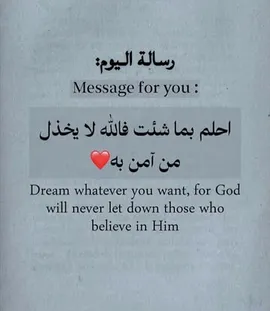 رسالة اليوم:
Message for you :
احلم بما شئت فالله لا يخذل
من آمن به❤️
Dream whatever you want, for God
will never let down those who
believe in Him